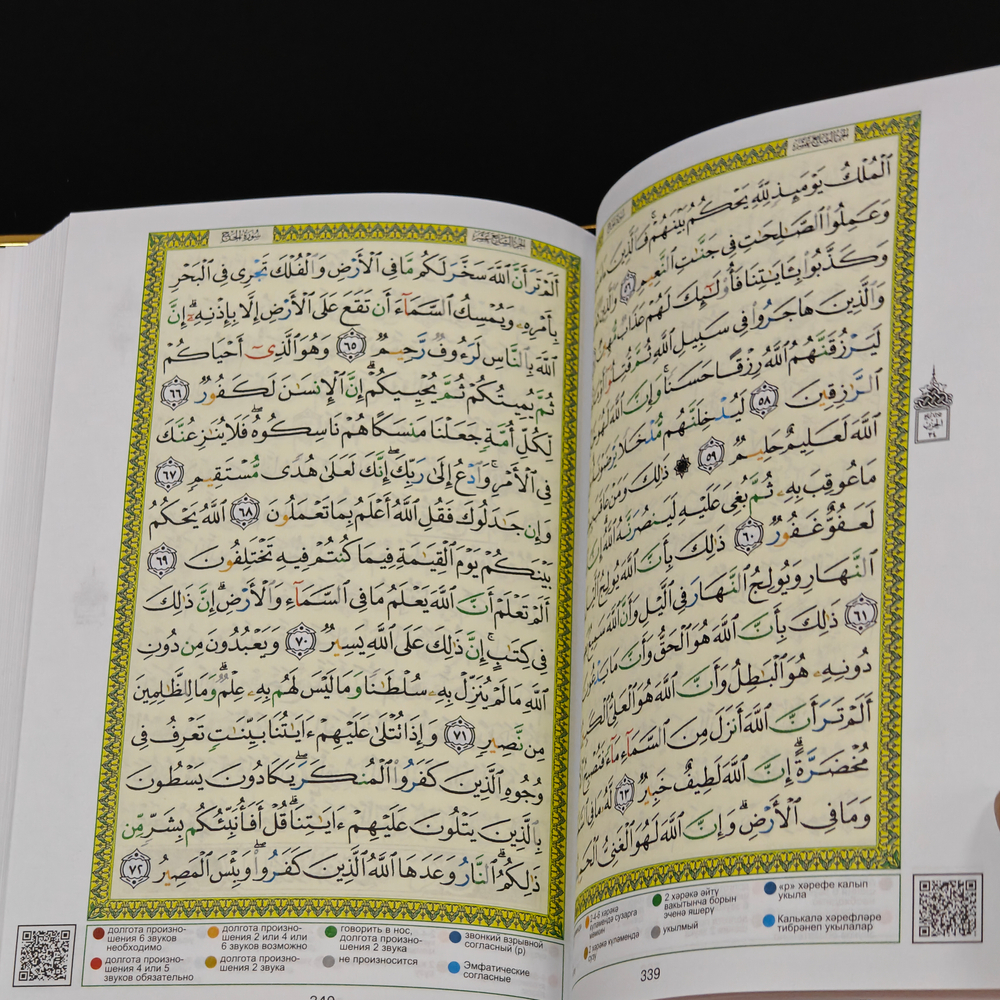 ٱلْمُلْكُ يَوْمَئِذٍ لِّلَّهِ يَحْكُمُ بَيْنَهُمْ ۚ فَٱلَّذِينَ
وَعَمِلُوا۟ ٱلصَّـٰلِحَـٰتِ فِى جَنَّـٰتِ ٱلنَّعِيمِ ٥٦ وَٱلَّذِينَ
وَكَذَّبُوا۟ بِـَٔايَـٰتِنَا فَأُو۟لَـٰٓئِكَ لَهُمْ عَذَابٌ
وَٱلَّذِينَ هَاجَرُوا۟ فِى سَبِيلِ ٱللَّهِ ثُمَّ قُتِلُوٓا۟
لَيَرْزُقَنَّهُمُ ٱللَّهُ رِزْقًا حَسَنًا ۚ وَإِنَّ ٱللَّهَ لَهُوَ
ٱلرَّٰزِقِينَ ٥٨ لَيُدْخِلَنَّهُم مُّدْخَلًا يَرْضَوْنَهُۥ
ٱللَّهَ لَعَلِيمٌ حَلِيمٌ ٥٩ ۞ ذَٰلِكَ وَمَنْ عَاقَبَ
مَا عُوقِبَ بِهِۦ ثُمَّ بُغِىَ عَلَيْهِ لَيَنصُرَنَّهُ ٱللَّهُ ۗ إِنَّ
لَعَفُوٌّ غَفُورٌ ٦٠ ذَٰلِكَ بِأَنَّ ٱللَّهَ يُولِجُ
ٱلنَّهَارِ وَيُولِجُ ٱلنَّهَارَ فِى ٱلَّيْلِ وَأَنَّ ٱللَّهَ سَمِيعٌۢ
٦١ ذَٰلِكَ بِأَنَّ ٱللَّهَ هُوَ ٱلْحَقُّ وَأَنَّ مَا يَدْعُونَ
دُونِهِۦ هُوَ ٱلْبَـٰطِلُ وَأَنَّ ٱللَّهَ هُوَ ٱلْعَلِىُّ
أَلَمْ تَرَ أَنَّ ٱللَّهَ أَنزَلَ مِنَ ٱلسَّمَآءِ مَآءً فَتُصْبِحُ
مُخْضَرَّةً ۗ إِنَّ ٱللَّهَ لَطِيفٌ خَبِيرٌ ٦٣ لَّهُۥ مَا فِى
وَمَا فِى ٱلْأَرْضِ ۗ وَإِنَّ ٱللَّهَ لَهُوَ ٱلْغَنِىُّ
2 хәрәкә әйтү вакытынча борын эченә яшерү
укылмый
«р» хәрефе калып укыла
Калькалә хәрефләре тибрәнеп укылалар
339
سُورَةُ الحَجِّ
أَلَمْ تَرَ أَنَّ ٱللَّهَ سَخَّرَ لَكُم مَّا فِى ٱلْأَرْضِ وَٱلْفُلْكَ تَجْرِى فِى ٱلْبَحْرِ
بِأَمْرِهِۦ وَيُمْسِكُ ٱلسَّمَآءَ أَن تَقَعَ عَلَى ٱلْأَرْضِ إِلَّا بِإِذْنِهِۦٓ ۗ إِنَّ
ٱللَّهَ بِٱلنَّاسِ لَرَءُوفٌ رَّحِيمٌ ٦٥ وَهُوَ ٱلَّذِىٓ أَحْيَاكُمْ
ثُمَّ يُمِيتُكُمْ ثُمَّ يُحْيِيكُمْ ۗ إِنَّ ٱلْإِنسَـٰنَ لَكَفُورٌ ٦٦
لِّكُلِّ أُمَّةٍ جَعَلْنَا مَنسَكًا هُمْ نَاسِكُوهُ ۖ فَلَا يُنَـٰزِعُنَّكَ
فِى ٱلْأَمْرِ ۚ وَٱدْعُ إِلَىٰ رَبِّكَ ۖ إِنَّكَ لَعَلَىٰ هُدًى مُّسْتَقِيمٍ ٦٧
وَإِن جَـٰدَلُوكَ فَقُلِ ٱللَّهُ أَعْلَمُ بِمَا تَعْمَلُونَ ٦٨ ٱللَّهُ يَحْكُمُ
بَيْنَكُمْ يَوْمَ ٱلْقِيَـٰمَةِ فِيمَا كُنتُمْ فِيهِ تَخْتَلِفُونَ ٦٩
أَلَمْ تَعْلَمْ أَنَّ ٱللَّهَ يَعْلَمُ مَا فِى ٱلسَّمَآءِ وَٱلْأَرْضِ ۗ إِنَّ ذَٰلِكَ
فِى كِتَـٰبٍ ۚ إِنَّ ذَٰلِكَ عَلَى ٱللَّهِ يَسِيرٌ ٧٠ وَيَعْبُدُونَ مِن دُونِ
ٱللَّهِ مَا لَمْ يُنَزِّلْ بِهِۦ سُلْطَـٰنًا وَمَا لَيْسَ لَهُم بِهِۦ عِلْمٌ ۗ وَمَا لِلظَّـٰلِمِينَ
مِن نَّصِيرٍ ٧١ وَإِذَا تُتْلَىٰ عَلَيْهِمْ ءَايَـٰتُنَا بَيِّنَـٰتٍ تَعْرِفُ فِى
وُجُوهِ ٱلَّذِينَ كَفَرُوا۟ ٱلْمُنكَرَ ۖ يَكَادُونَ يَسْطُونَ
بِٱلَّذِينَ يَتْلُونَ عَلَيْهِمْ ءَايَـٰتِنَا ۗ قُلْ أَفَأُنَبِّئُكُم بِشَرٍّ مِّن
ذَٰلِكُمُ ۗ ٱلنَّارُ وَعَدَهَا ٱللَّهُ ٱلَّذِينَ كَفَرُوا۟ ۖ وَبِئْسَ ٱلْمَصِيرُ ٧٢
долгота произно-
шения 6 звуков
необходимо
долгота произно-
шения 4 или 5
звуков обязательно
долгота произно-
шения 2 или 4 или
6 звуков возможно
долгота произно-
шения 2 звука
говорить в нос,
долгота произно-
шения 2 звука
не произносится
звонкий взрывной
согласный (р)
Эмфатические
согласные
340